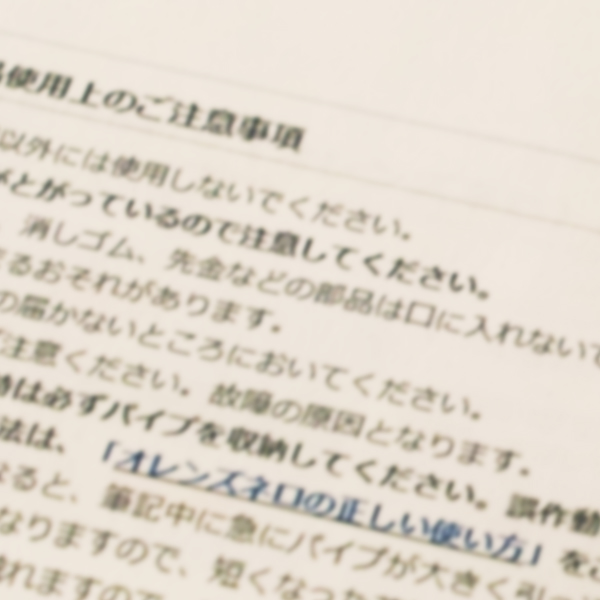 使用上のご注意事項
以外には使用しないでください。
とがっているので注意してください。
消しゴム、先金などの部品は口に入れないで
るおそれがあります。
の届かないところにおいてください。
注意ください。故障の原因となります。
時は必ずパイプを収納してください。誤作動
法は、「オレンズネロの正しい使い方」を
なると、筆記中に急にパイプが大きく引っ
なりますので、短くなった
れますので